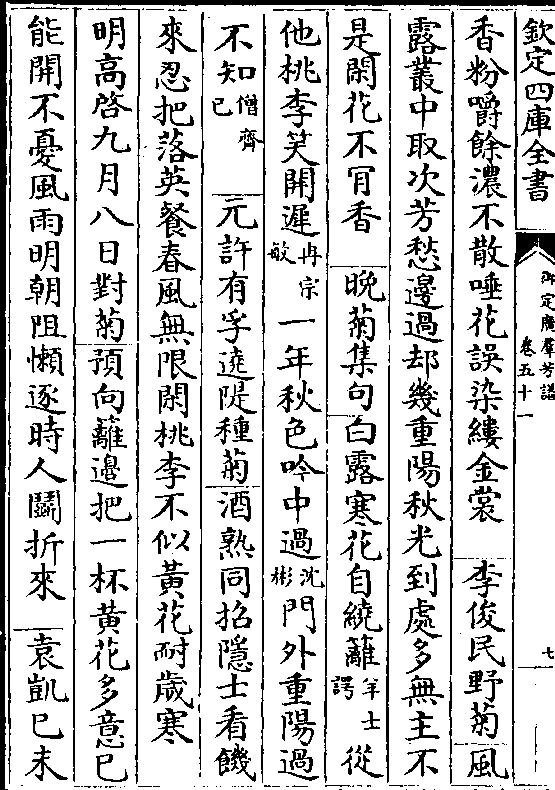 欽定四庫全書
御定廣羣芳譜
卷五十一
七
香粉嚼餘濃不散唾花誤染縷金裳 李俊民野菊 風
露叢中取次芳愁邊過却幾重陽秋光到處多無主不
是閑花不肎香 晚菊集句 白露寒花自繞籬羊士諤從
他桃李笑開遲冉宗敏一年秋色吟中過沈彬門外重陽過
不知僧齊已 元許有孚遶隄種菊 酒熟同招隱士看饑
來忍把落英餐春風無限閑桃李不似黃花耐歲寒
明高啓九月八日對菊 預向籬邊把一杯黄花多意已
能開不憂風雨明朝阻懶逐時人鬭折來 袁凱已未